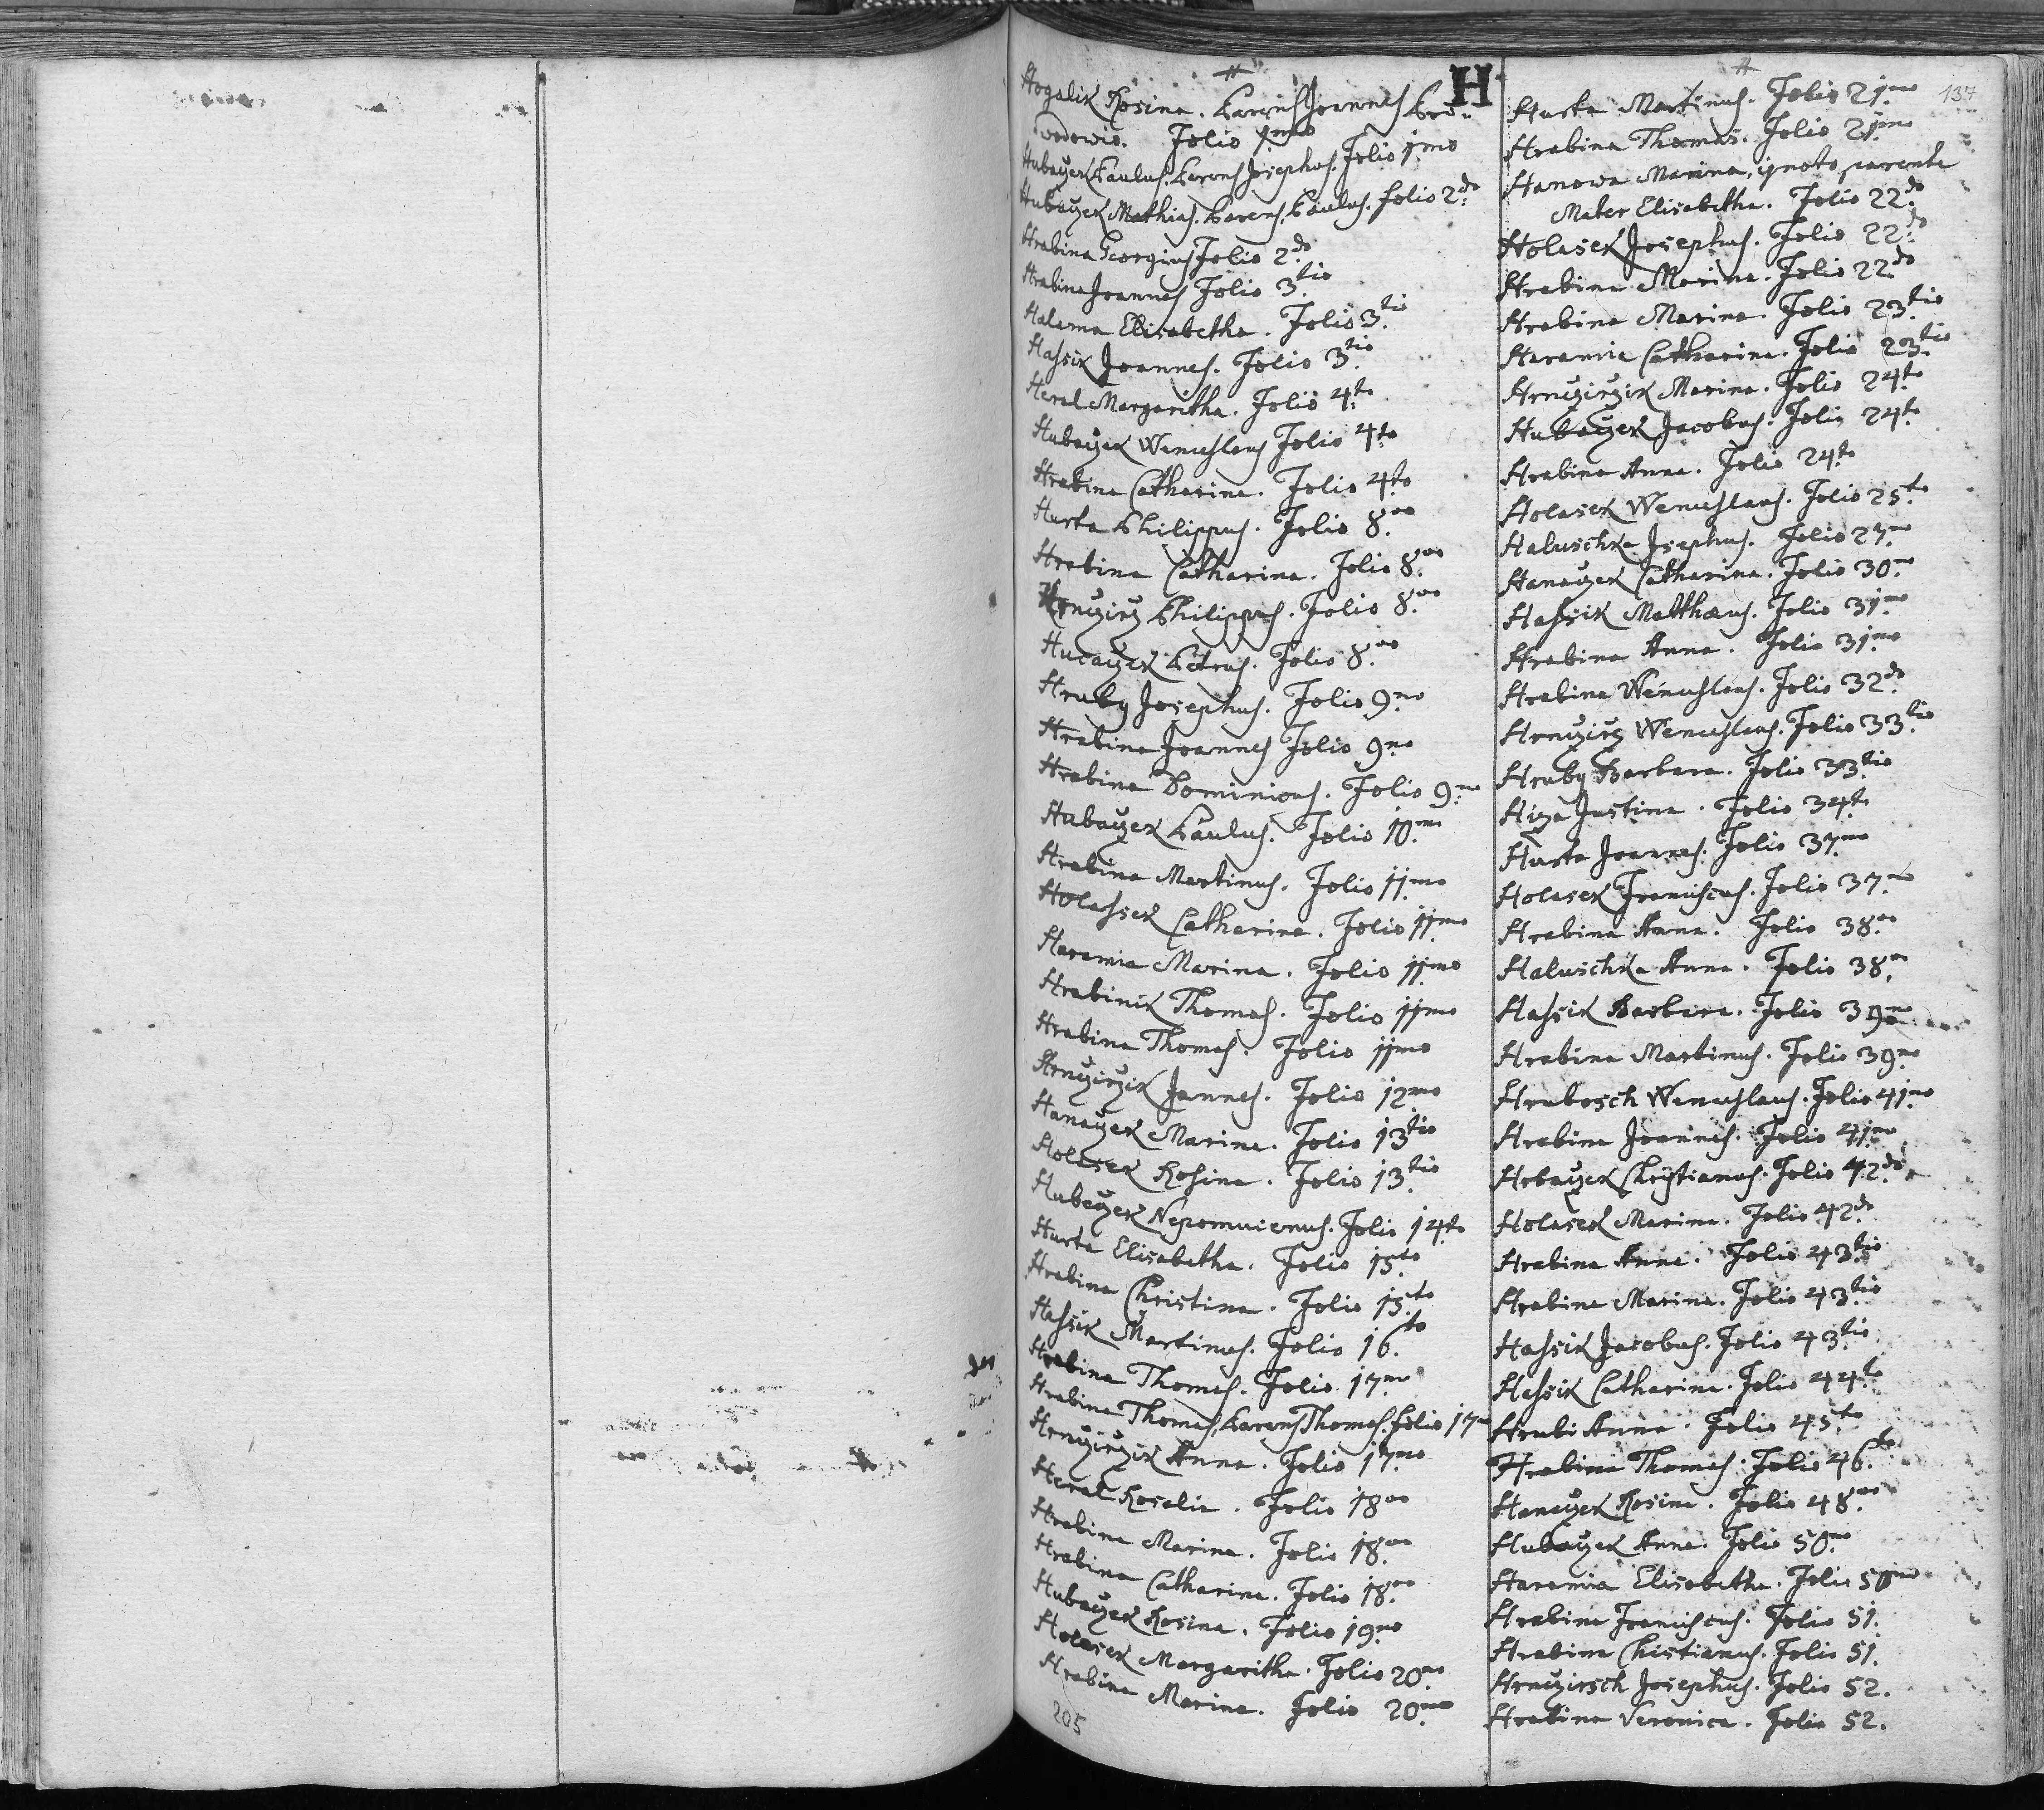 H
Hogalik Rosina. Parens Joannes
Folio 1mo
Hubaczek Paulus, Parens Josephus. Folio 1mo
Hubaczek Mathias. Parens Paulus. folio 2do
Hrabina Georgius Folio 2do
Hrabina Joannes Folio 3tio
Halama Elisabetha. Folio 3tio
Hassik Joannes. Folio 3tio
Heral Margaritha. Folio 4to
Hubaczek Wenceslaus Folio 4to
Hrabina Catharina. Folio 4to
Hurta Philippus. Folio 8vo
Hrabina Catharina. Folio 8vo
Hrnczirz Philippus. Folio 8vo
Hucaczek Petrus. Folio 8vo
Hruby Josephus. Folio 9no
Hrabina Joannes Folio 9no
Hrabina Dominicus. Folio 9no
Hubaczek Paulus. Folio 10mo
Hrabina Martinus. Folio 11mo
Holassek Catharina. Folio 11mo
Haramia Marina. Folio 11mo
Hrabinik Thomas. Folio 11mo
Hrabina Thomas. Folio 11mo
Hrnczirzik Jannes. Folio 12mo
Hanaczek Marina. Folio 13tio
Holasek Rosina. Folio 13tio
Hubaczek Nepomucenus. Folio 14to
Hurta Elisabetha. Folio 15to
Hrabina Christina. Folio 15to
Hassik Martinus. Folio 16to
Hrabina Thomas. Folio 17mo
Hrabina Thomas, Parens Thomas. Folio 17mo
Hrnczirzik Anna. Folio 17mo
Heral Rosalia. Folio 18vo
Hrabina Marina. Folio 18vo
Hrabina Catharina. Folio 18vo
Hubaczek Rosina. Folio 19no
Holasek Margaritha. Folio 20mo
Hrabina Marina. Folio 20mo
205
137
Hurta Martinus. Folio 21mo
Hrabina Thomas. Folio 21mo
Hanowa Marina, ignoto parente
Mater Elisabetha. Folio 22do
Holasek Josephus. Folio 22do
Hrabina Marina. Folio 22do
Hrabina Marina. Folio 23tio
Haramia Catharina. Folio 23tio
Hrnczirzik Marina. Folio 24to
Hubaczek Jacobus. Folio 24to
Hrabina Anna. Folio 24to
Holasek Wenceslaus. Folio 25to
Haluschka Josephus. Folio 27mo
Hanaczek Catharina. Folio 30mo
Hassik Matthaeus. Folio 31mo
Hrabina Anna. Folio 31mo
Hrabina Wenceslaus. Folio 32do
Hrnczirz Wenceslaus. Folio 33tio
Hruby Barbara. Folio 33tio
Hiza Justina. Folio 34to
Hurta Joannes. Folio 37mo
Holasek Franciscus. Folio 37mo
Hrabina Anna. Folio 38vo
Haluschka Anna. Folio 38vo
Hassik Barbara. Folio 39no
Hrabina Martinus. Folio 39no
Hrabosch Wenceslaus. Folio 41mo
Hrabina Joannes. Folio 41mo
Hrbaczek Christianus. Folio 42do
Holasek Marina. Folio 42do
Hrabina Anna. Folio 43tio
Hrabina Marina. Folio 43tio
Hassik Jacobus. Folio 43tio
Hassik Catharina. Folio 44to
Hrubi Anna. Folio 45to
Hrabina Thomas. Folio 46to
Hanaczek Rosina. Folio 48vo
Hubaczek Anna. Folio 50mo
Haramia Elisabetha. Folio 50mo
Hrabina Franciscus. Folio 51.
Hrabina Christianus. Folio 51.
Hrnczirsch Josephus. Folio 52.
Hrabina Veronica. Folio 52.